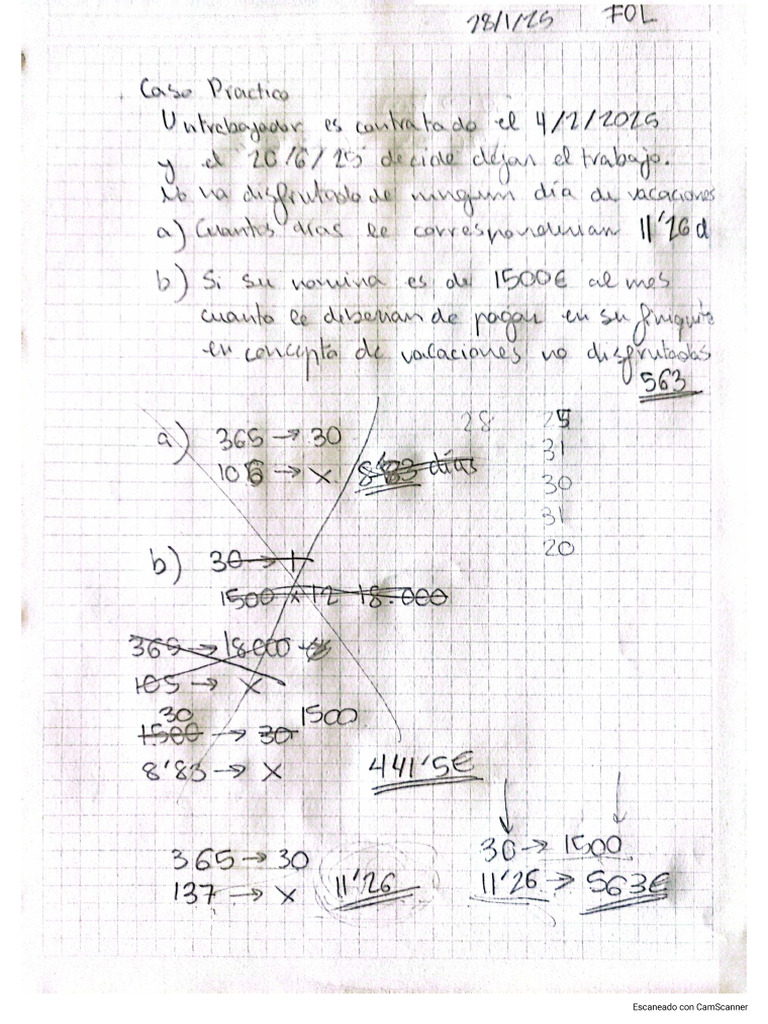 28/1/25 FOL
Caso Practico
Un trabajador es contratado el 4/2/2025
y el 20/6/25 decide dejar el trabajo.
No ha disfrutado de ningun día de vacaciones
a) Cuantos días le corresponderian 11'26 d
b) Si su nomina es de 1500€ al mes
cuanto le deberian de pagar en su finiquito
en concepto de vacaciones no disfrutadas
563
a) 365 → 30 28 25
31
106 → x 8'83 días 30
31
b) 30 → 1 20
1500 x 12 18.000
365 → 18000
105 → x
30 1500
1500 → 30
8'83 → x 441'5€
365 → 30 30 → 1500
137 → x 11'26 11'26 → 563€
Escaneado con CamScanner